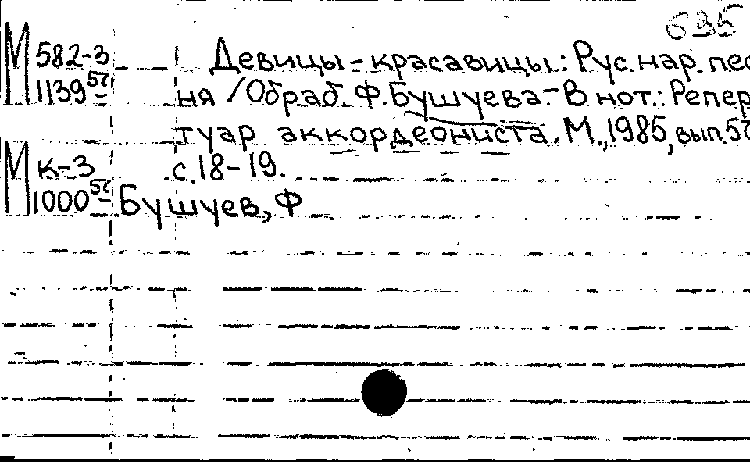 635
М 582-3 Девицы-красавицы: Рус. нар. пес
1139 52 ня / Обраб. Ф. Бушуева.- В нот.: Репер
туар аккордеониста. М., 1985, вып. 52
М к-3 с. 18-19.
1000 52 Бушуев, Ф